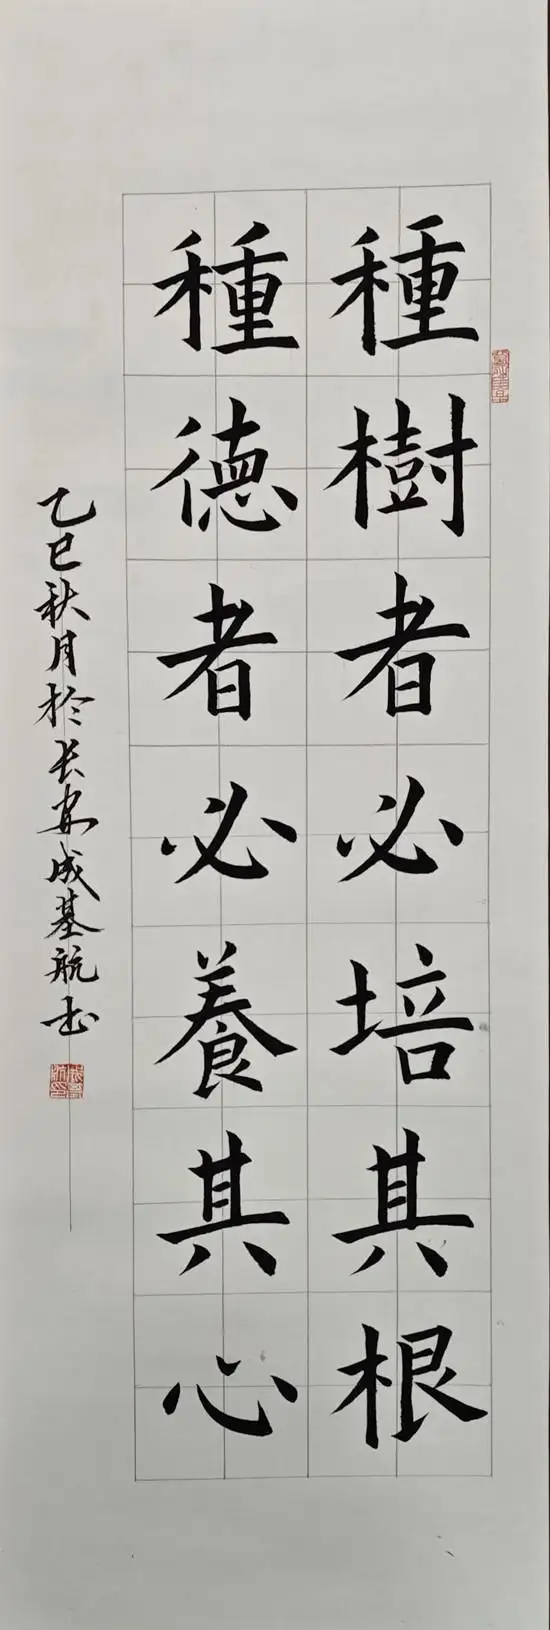 種樹者必培其根
種德者必養其心
乙巳秋月於长安成基航书